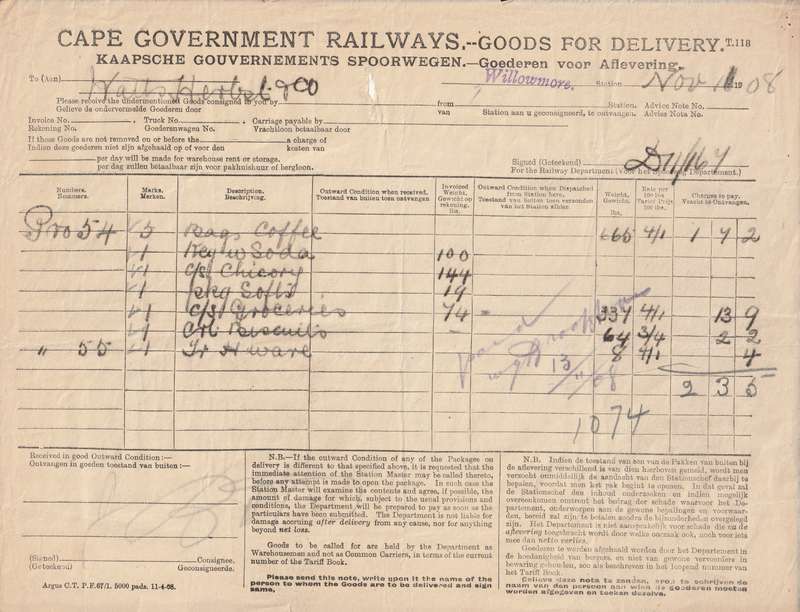 CAPE GOVERNMENT RAILWAYS.--GOODS FOR DELIVERY. T.118
KAAPSCHE GOUVERNEMENTS SPOORWEGEN.—Goederen voor Aflevering.
To (Aan) Watts Herbst & Co Willowmore. Station Nov 11 1908
Please receive the undermentioned Goods consigned to you by from Station. Advice Note No.
Gelieve de ondervermelde Goederen door van Station aan u geconsigneerd, te ontvangen. Advies Nota No.
Invoice No. , Truck No. , Carriage payable by
Rekening No. Goederenwagen No. Vrachtloon betaalbaar door
If those Goods are not removed on or before the a charge of
Indien deze goederen niet zijn afgehaald op of voor den kosten van
per day will be made for warehouse rent or storage.
per dag zullen betaalbaar zijn voor pakhuishuur of bergloon.
Signed (Geteekend)
For the Railway Department.
Numbers. Marks. Description. Outward Condition when received. Invoiced Weight. Outward Condition when Dispatched from Station here. Weight. Rate per 100 lbs Charges to pay.
Nummers. Merken. Beschrijving. Toestand van buiten toen ontvangen Gewicht op rekening. lbs. Toestand van buiten toen verzonden van het Station alhier. Gewicht. lbs. Tarief Prijs 100 lbs. Vracht te Ontvangen.
Pro 54 5 Bags Coffee 665 4/1 1 7 2
1 Keg w Soda 100
1 c/s Chicory 144
1 pkg Softs 19
1 c/s Groceries 74 " 337 4/1 13 9
1 Crt Biscuits 64 3/4 2 2
" 55 1 Tr H ware 8 4/1 4
paid
13/11/08
2 3 5
1074
Received in good Outward Condition :—
Ontvangen in goeden toestand van buiten :—
(Signed) Consignee.
(Geteekend) Geconsigneerde.
Argus C.T. P.F.67/1. 5000 pads. 11-4-08.
N.B.—If the outward Condition of any of the Packages on
delivery is different to that specified above, it is requested that the
immediate attention of the Station Master may be called thereto,
before any attempt is made to open the package. In such case the
Station Master will examine the contents and agree, if possible, the
amount of damage for which, subject to the usual provisions and
conditions, the Department will be prepared to pay as soon as the
particulars have been submitted. The Department is not liable for
damage accruing after delivery from any cause, nor for anything
beyond net loss.
Goods to be called for are held by the Department as
Warehousemen and not as Common Carriers, in terms of the current
number of the Tariff Book.
Please send this note, write upon it the name of the
person to whom the Goods are to be delivered and sign
same.
N.B. Indien de toestand van een van de Pakken van buiten bij
de aflevering verschillend is van dien hierboven gemeld, wordt men
verzocht onmiddellijk de aandacht van den Stationschef daarbij te
bepalen, voordat men het pak begint te openen. In dat geval zal
de Stationschef den inhoud onderzoeken en indien mogelijk
overeenkomen omtrent het bedrag der schade waarvoor het De-
partement, onderworpen aan de gewone bepalingen en voorwaar-
den, bereid zal zijn te betalen zoodra de bijzonderheden overgelegd
zijn. Het Departement is niet aansprakelijk voor schade die na de
aflevering toegebracht wordt door welke oorzaak ook, noch voor iets
meer dan netto verlies.
Goederen te worden afgehaald worden door het Departement in
de hoedanigheid van bergers, en niet van gewone vervoerders in
bewaring gehouden, zoo als beschreven in het loopend nummer van
het Tarief Boek.
Gelieve deze nota te zenden, erop te schrijven de
naam van den persoon aan wien de goederen moeten
worden afgegeven en teeken dezelve.